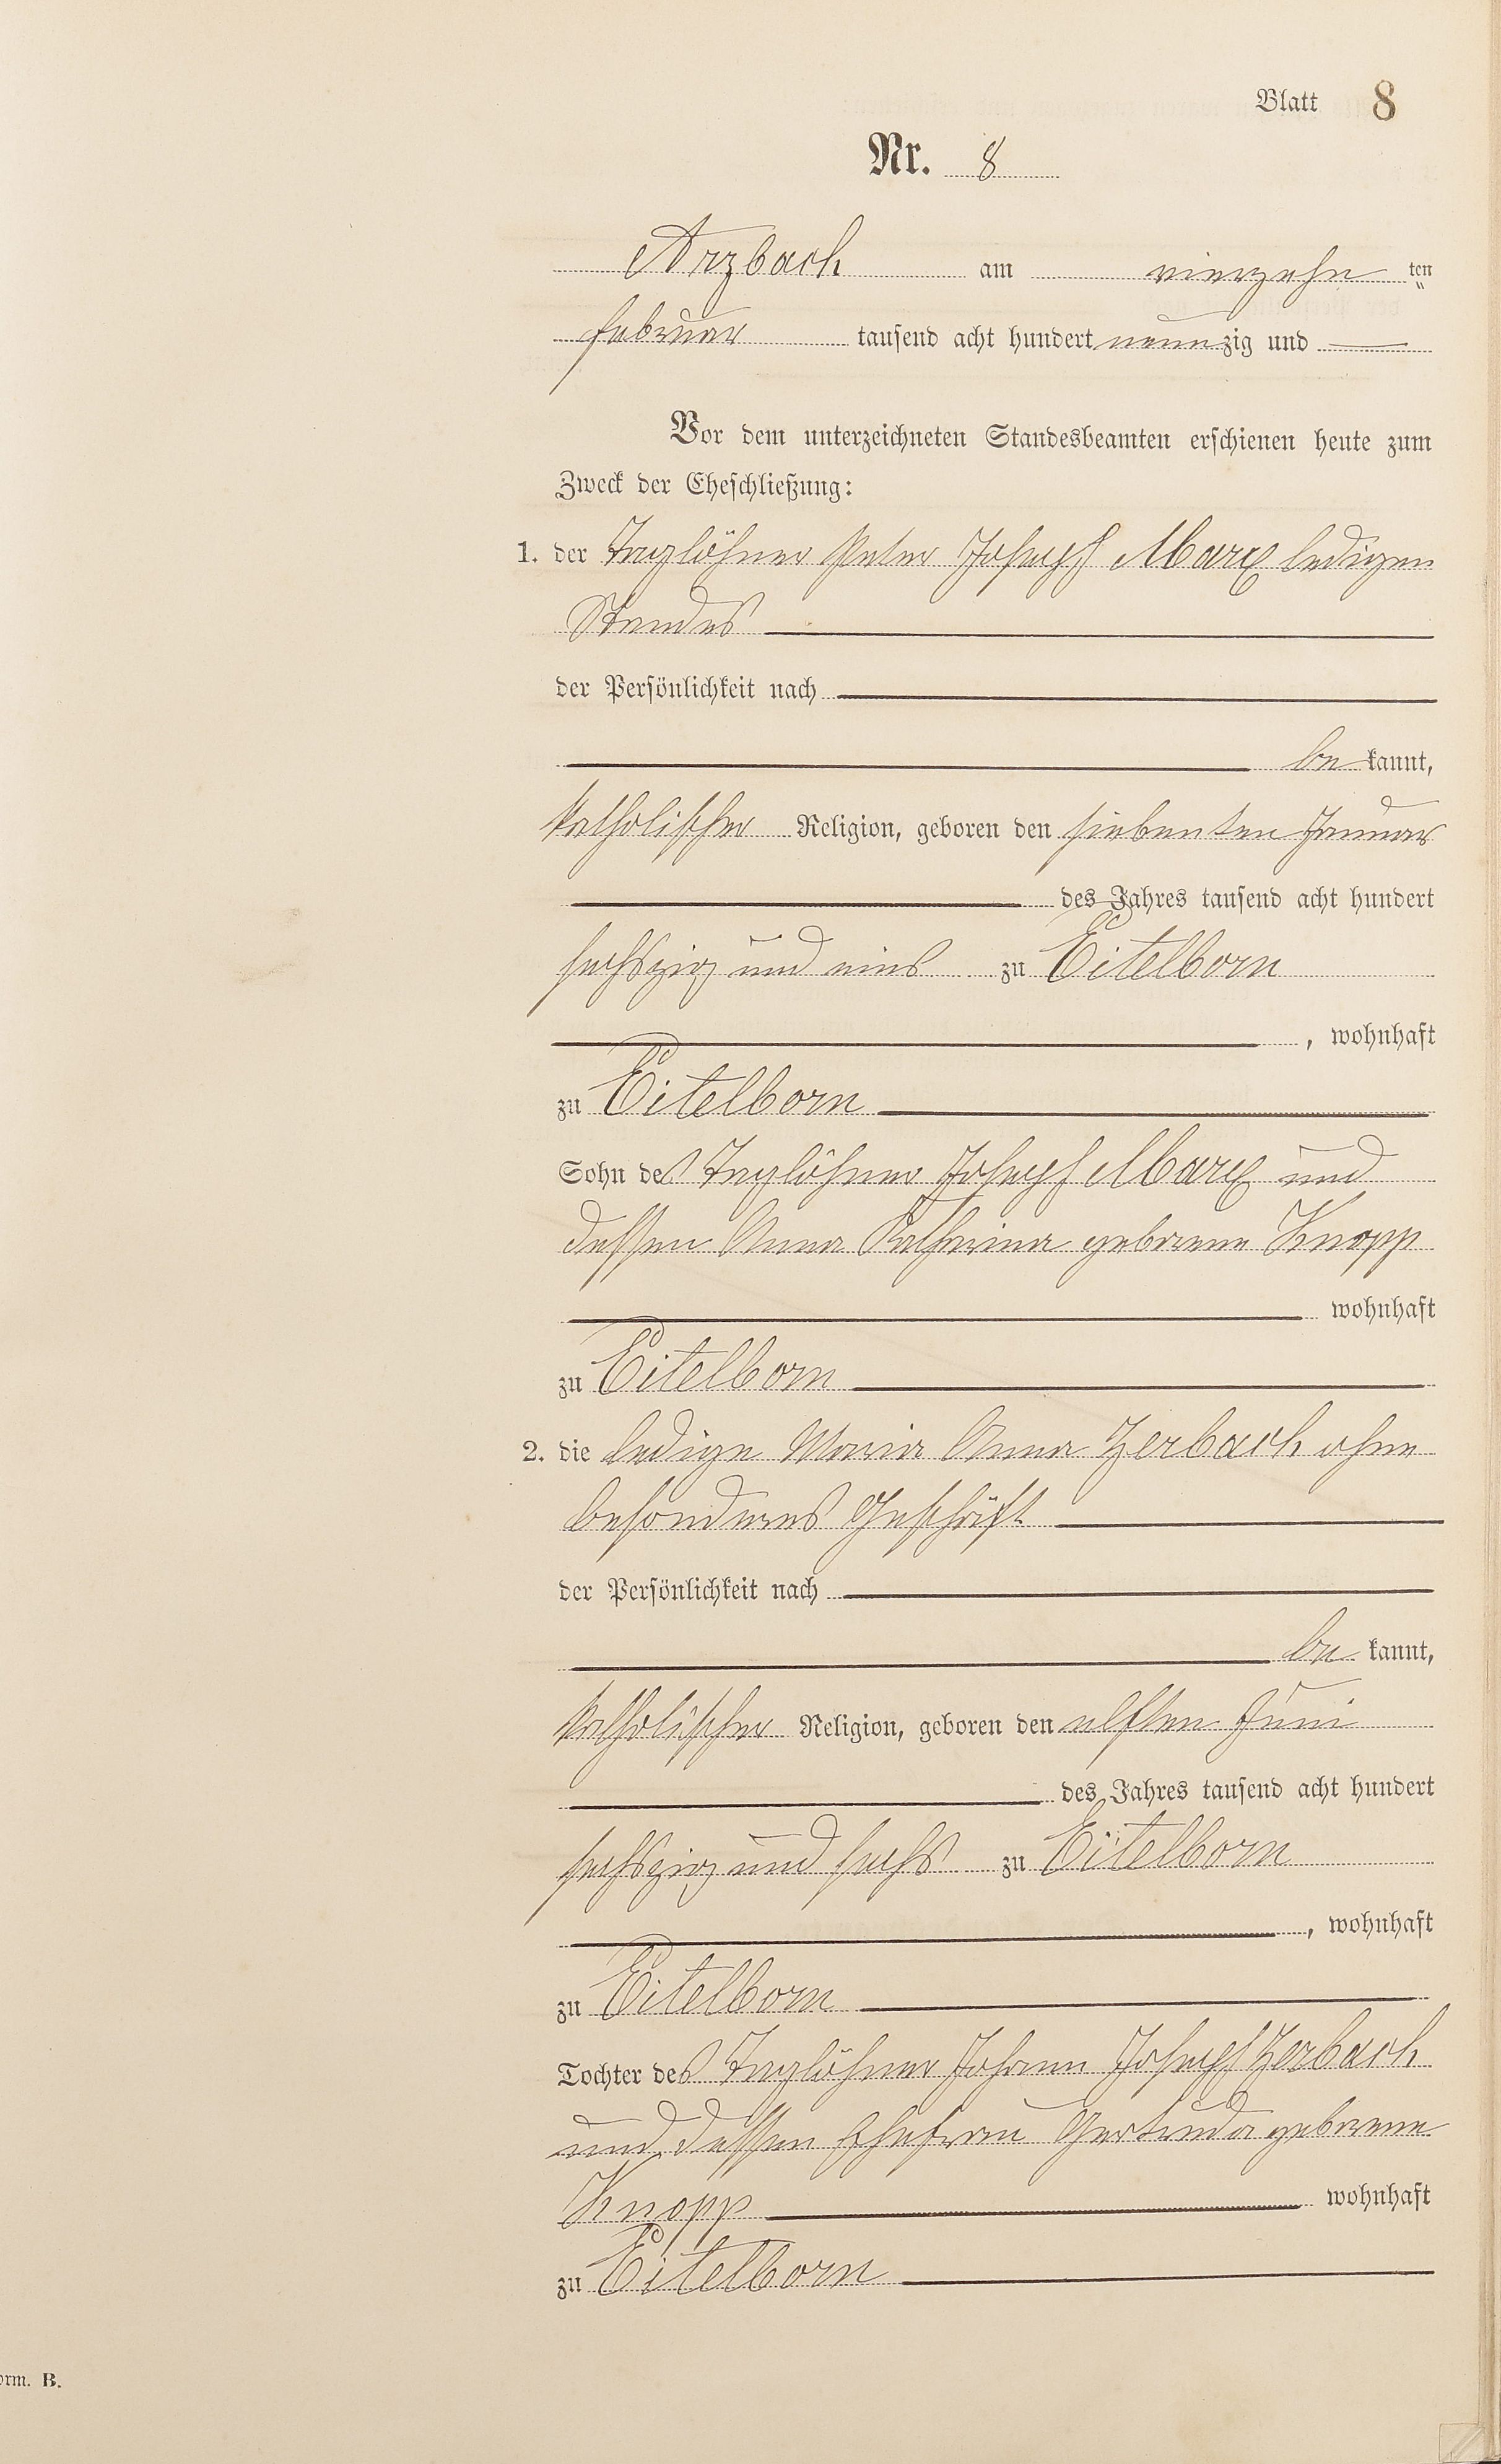 Blatt 8
Nr. 8
Arzbach am vierzehn ten
Februar tausend acht hundert neunzig und —
Vor dem unterzeichneten Standesbeamten erschienen heute zum
Zweck der Eheschließung:
1. der Taglöhner Peter Joseph Marx ledigen
Standes
der Persönlichkeit nach
be kannt,
katholischer Religion, geboren den siebenten Januar
des Jahres tausend acht hundert
sechszig und eins zu Eitelborn
, wohnhaft
zu Eitelborn
Sohn des Taglöhner Joseph Marx und
dessen Anna Katharina geborene Knopp
wohnhaft
zu Eitelborn
2. die ledige Maria Anna Zerbach ohne
besonderes Geschäft
der Persönlichkeit nach
be kannt,
katholischer Religion, geboren den elften Juni
des Jahres tausend acht hundert
sechszig und sechs zu Eitelborn
, wohnhaft
zu Eitelborn
Tochter des Taglöhner Johann Joseph Zerbach
und dessen Ehefrau Gertruda geborene
Knopp wohnhaft
zu Eitelborn
orm. B.